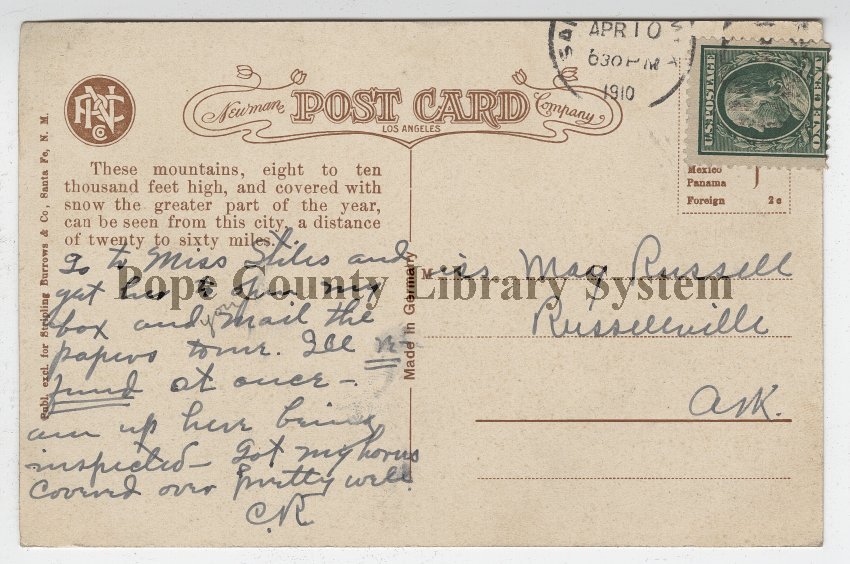 APR 10
630 PM
1910
U.S. POSTAGE
ONE CENT
PNC
Co
Newman POST CARD Company
LOS ANGELES
Mexico
Panama
Foreign 2c
These mountains, eight to ten
thousand feet high, and covered with
snow the greater part of the year,
can be seen from this city, a distance
of twenty to sixty miles.
Publ. excl. for Stripling Burrows & Co., Santa Fe, N. M.
Made in Germany
Pope County Library System
Go to Miss Stiles and
get her to open my
box and you mail the
papers to me. Ill re-
fund at once—
am up here being
inspected— Got my horns
covered over pretty well.
C.R.
Miss May Russell
Russellville
Ark.